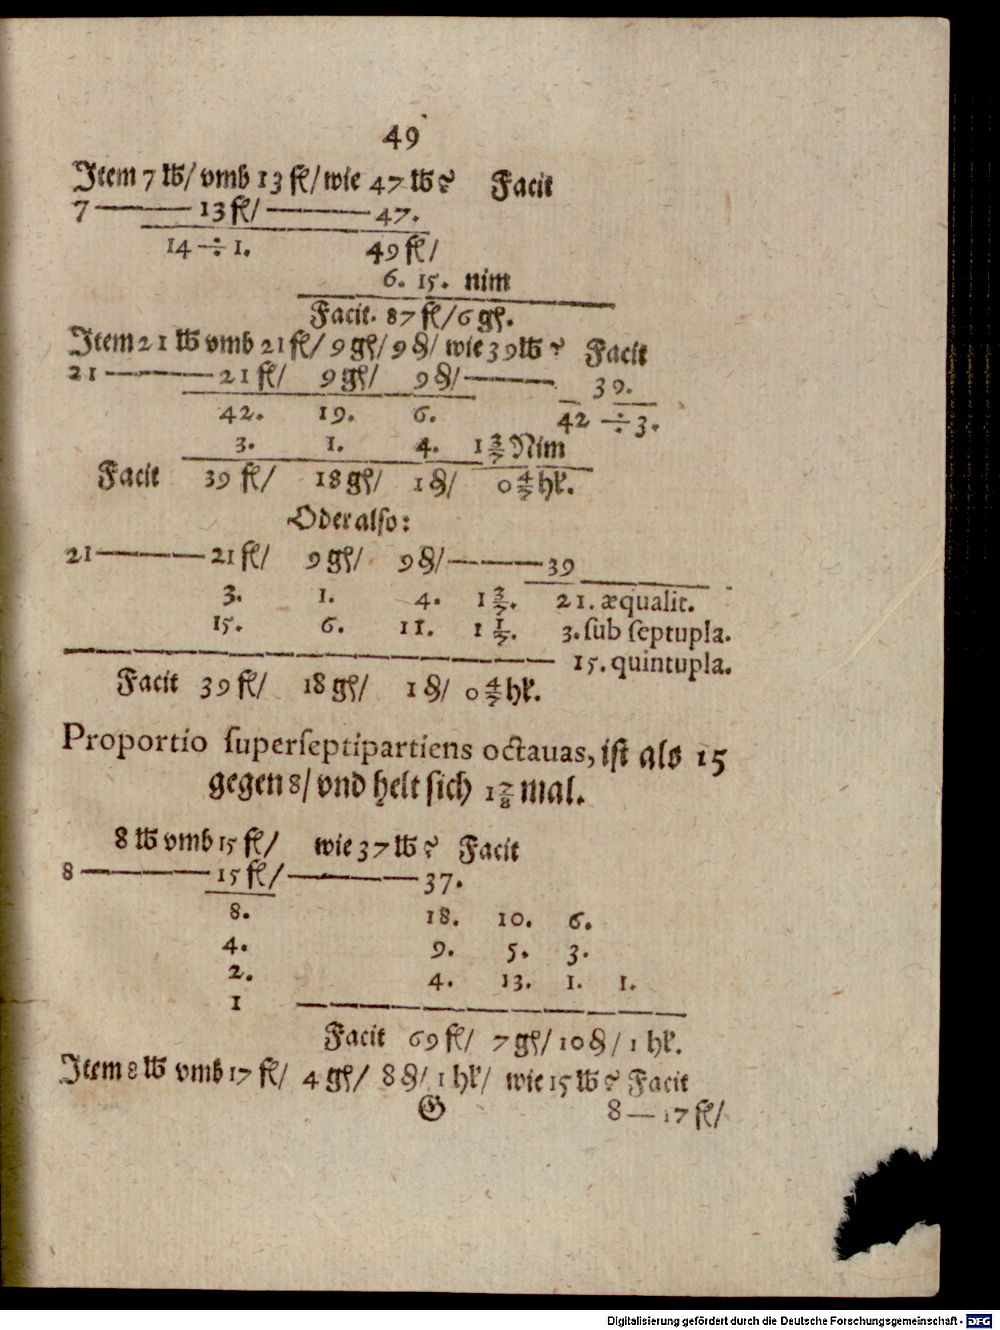 49
Item 7 ℔/ vmb 13 fl/ wie 47 ℔? Facit
7 —— 13 fl/ —— 47.
14 ÷ 1. 49 fl/
6. 15. nim
Facit. 87 fl/ 6 gſ.
Item 21 ℔ vmb 21 fl/ 9 gſ/ 9 ₰/ wie 39 ℔? Facit
21 —— 21 fl/ 9 gſ/ 9 ₰/ —— 39.
42. 19. 6. 42 ÷ 3.
3. 1. 4. 1 3/7 Nim
Facit 39 fl/ 18 gſ/ 1 ₰/ 0 4/7 hl.
Oder alſo:
21 —— 21 fl/ 9 gſ/ 9 ₰/ —— 39
3. 1. 4. 1 3/7. 21. æqualit.
15. 6. 11. 1 1/7. 3. ſub ſeptupla.
15. quintupla.
Facit 39 fl/ 18 gſ/ 1 ₰/ 0 4/7 hl.
Proportio ſuperſeptipartiens octauas, iſt als 15
gegen 8/ vnd helt ſich 1 7/8 mal.
8 ℔ vmb 15 fl/ wie 37 ℔? Facit
8 —— 15 fl/ —— 37.
8. 18. 10. 6.
4. 9. 5. 3.
2. 4. 13. 1. 1.
1
Facit 69 fl/ 7 gſ/ 10 ₰/ 1 hl.
Item 8 ℔ vmb 17 fl/ 4 gſ/ 8 ₰/ 1 hl/ wie 15 ℔? Facit
G 8 — 17 fl/
Digitalisierung gefördert durch die Deutsche Forschungsgemeinschaft - DFG